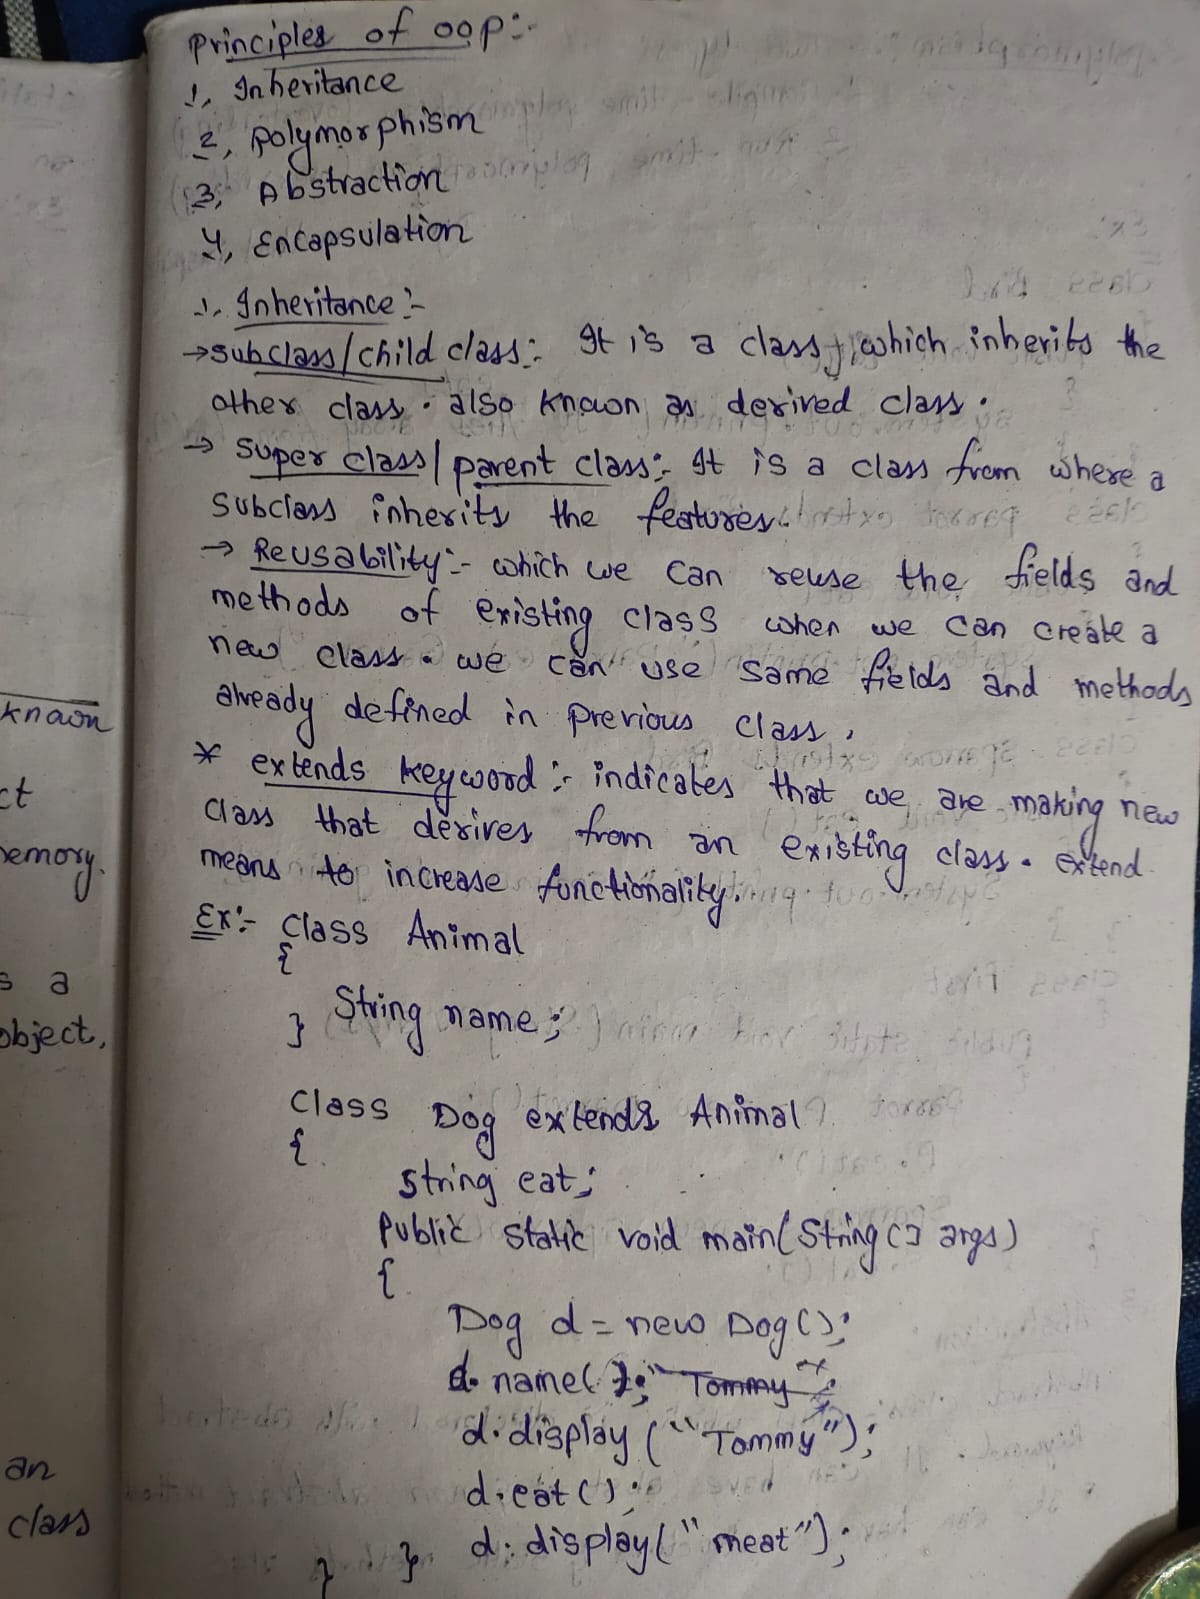 Principles of oop:-
1, Inheritance
2, polymorphism
3, Abstraction
4, Encapsulation
1. Inheritance:-
→subclass/child class:- It is a class, which inherits the
other class. also known as derived class.
→ super class/parent class:- It is a class from where a
subclass inherits the features.
→ Reusability:- which we can reuse the fields and
methods of existing class when we can create a
new class. we can use same fields and methods
already defined in previous class.
* extends keyword:- indicates that we are making new
class that derives from an existing class. extend
means to increase functionality.
Ex:- Class Animal
{
String name;
}
Class Dog extends Animal
{
String eat;
Public static void main(String[] args)
{
Dog d = new Dog();
d.name(); "Tommy";
d.display("Tommy");
d.eat();
d.display("meat");
} }
known
ct
emory.
s a
object,
an
class